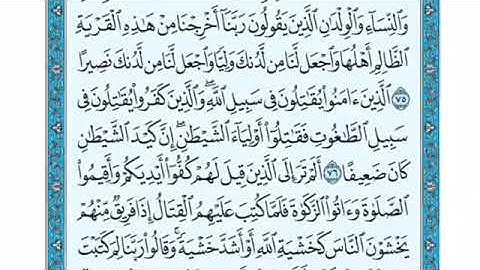 وَٱلنِّسَآءِ وَٱلْوِلْدَٰنِ ٱلَّذِينَ يَقُولُونَ رَبَّنَآ أَخْرِجْنَا مِنْ هَٰذِهِ ٱلْقَرْيَةِ
ٱلظَّالِمِ أَهْلُهَا وَٱجْعَل لَّنَا مِن لَّدُنكَ وَلِيًّا وَٱجْعَل لَّنَا مِن لَّدُنكَ نَصِيرًا
٧٥ ٱلَّذِينَ ءَامَنُوا۟ يُقَٰتِلُونَ فِى سَبِيلِ ٱللَّهِ ۖ وَٱلَّذِينَ كَفَرُوا۟ يُقَٰتِلُونَ فِى
سَبِيلِ ٱلطَّٰغُوتِ فَقَٰتِلُوٓا۟ أَوْلِيَآءَ ٱلشَّيْطَٰنِ ۖ إِنَّ كَيْدَ ٱلشَّيْطَٰنِ
كَانَ ضَعِيفًا ٧٦ أَلَمْ تَرَ إِلَى ٱلَّذِينَ قِيلَ لَهُمْ كُفُّوٓا۟ أَيْدِيَكُمْ وَأَقِيمُوا۟
ٱلصَّلَوٰةَ وَءَاتُوا۟ ٱلزَّكَوٰةَ فَلَمَّا كُتِبَ عَلَيْهِمُ ٱلْقِتَالُ إِذَا فَرِيقٌ مِّنْهُمْ
يَخْشَوْنَ ٱلنَّاسَ كَخَشْيَةِ ٱللَّهِ أَوْ أَشَدَّ خَشْيَةً ۚ وَقَالُوا۟ رَبَّنَا لِمَ كَتَبْتَ